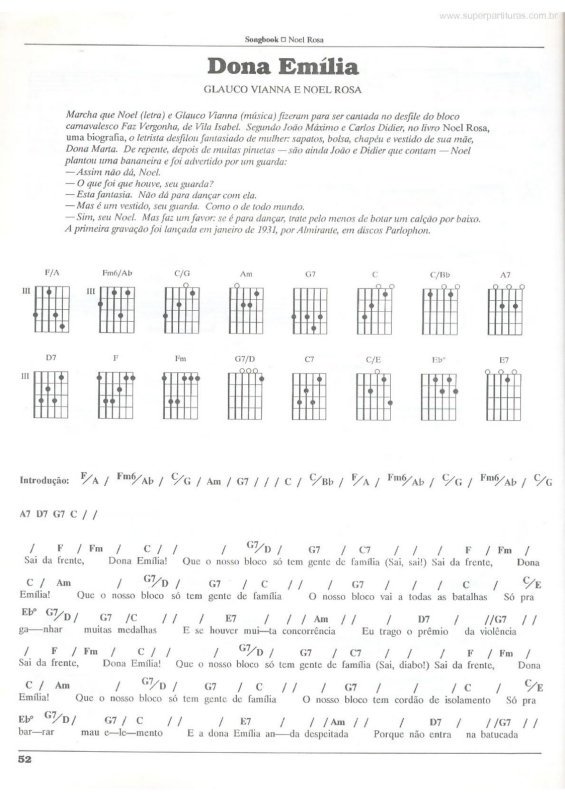 www.superpartituras.com.br
Songbook □ Noel Rosa
Dona Emília
GLAUCO VIANNA E NOEL ROSA
Marcha que Noel (letra) e Glauco Vianna (música) fizeram para ser cantada no desfile do bloco
carnavalesco Faz Vergonha, de Vila Isabel. Segundo João Máximo e Carlos Didier, no livro Noel Rosa,
uma biografia, o letrista desfilou fantasiado de mulher: sapatos, bolsa, chapéu e vestido de sua mãe,
Dona Marta. De repente, depois de muitas piruetas — são ainda João e Didier que contam — Noel
plantou uma bananeira e foi advertido por um guarda:
— Assim não dá, Noel.
— O que foi que houve, seu guarda?
— Esta fantasia. Não dá para dançar com ela.
— Mas é um vestido, seu guarda. Como o de todo mundo.
— Sim, seu Noel. Mas faz um favor: se é para dançar, trate pelo menos de botar um calção por baixo.
A primeira gravação foi lançada em janeiro de 1931, por Almirante, em discos Parlophon.
F/A Fm6/Ab C/G Am G7 C C/Bb A7
III III
D7 F Fm G7/D C7 C/E Eb° E7
III
Introdução: F/A / Fm6/Ab / C/G / Am / G7 / / / C / C/Bb / F/A / Fm6/Ab / C/G / Fm6/Ab / C/G
A7 D7 G7 C / /
/ F / Fm / C / / / G7/D / G7 / C7 / / / F / Fm /
Sai da frente, Dona Emília! Que o nosso bloco só tem gente de família (Sai, sai!) Sai da frente, Dona
C / Am / G7/D / G7 / C / / G7 / / / C / C/E
Emília! Que o nosso bloco só tem gente de família O nosso bloco vai a todas as batalhas Só pra
Eb° G7/D / G7 /C / / / E7 / / / Am / / / D7 / //G7 / /
ga—nhar muitas medalhas E se houver mui—ta concorrência Eu trago o prêmio da violência
/ F / Fm / C / / / G7/D / G7 / C7 / / / F / Fm /
Sai da frente, Dona Emília! Que o nosso bloco só tem gente de família (Sai, diabo!) Sai da frente, Dona
C / Am / G7/D / G7 / C / / / G7 / / / C / C/E
Emília! Que o nosso bloco só tem gente de família O nosso bloco tem cordão de isolamento Só pra
Eb° G7/D / G7 / C / / / E7 / / / Am / / / D7 / / /G7 / /
bar—rar mau e—le—mento E a dona Emília an—da despeitada Porque não entra na batucada
52